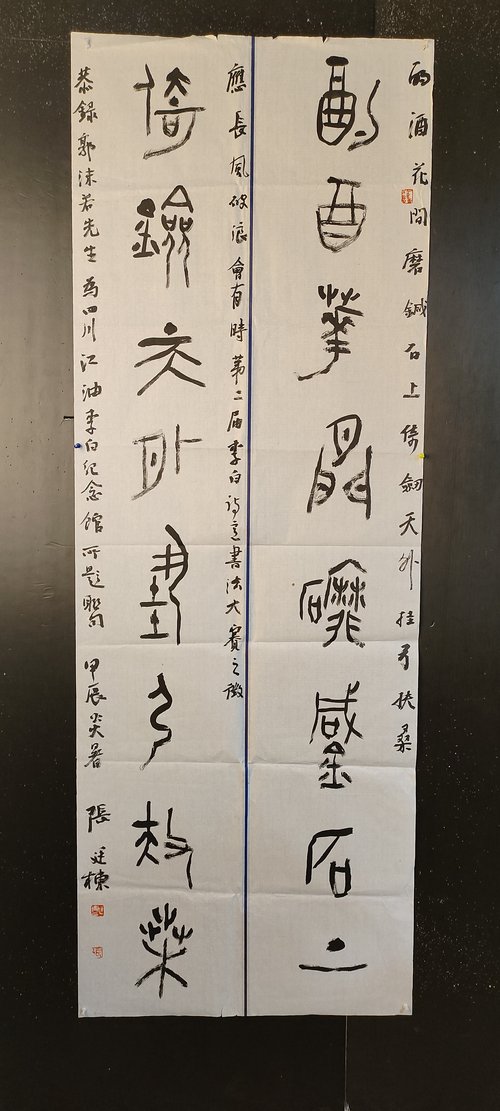 酌酒花間磨鍼石上倚劍天外挂弓扶桑
酌酒華間磨鍼石上
應長風破浪會有時第二屆李白詩意書法大賽之徵
倚劍天外挂弓扶桑
恭錄郭沫若先生為四川江油李白紀念館所題聯句 甲辰炎暑 張廷棟